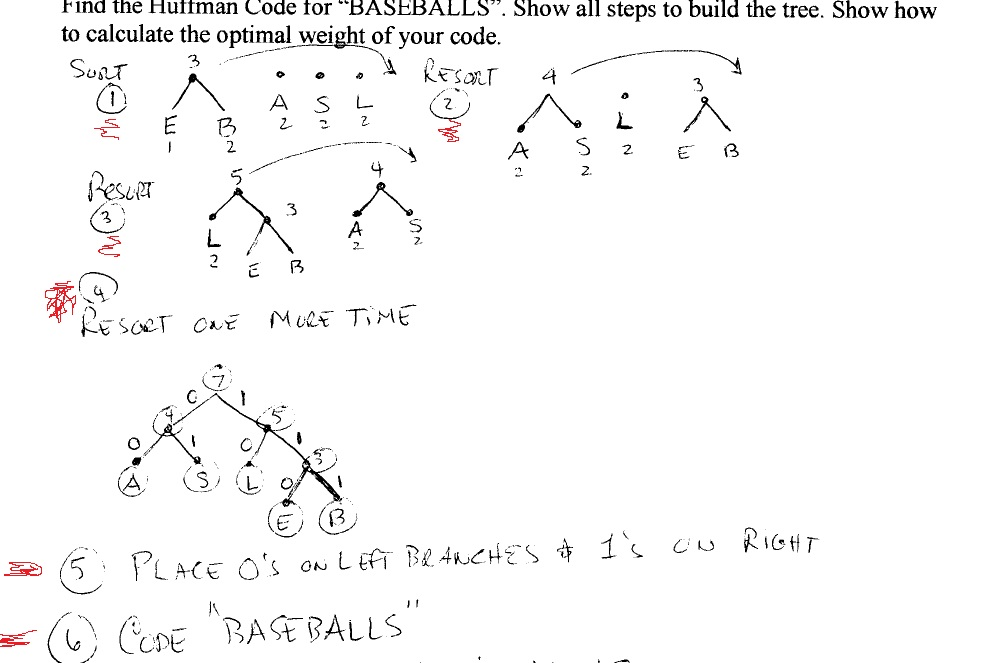 Find the Huffman Code for “BASEBALLS”. Show all steps to build the tree. Show how
to calculate the optimal weight of your code.
SORT 3 RESORT 4 3
1 A S L 2 L
E B 2 2 2 A S 2 E B
1 2 2 2
RESORT 5 4
3 3 A S
L 2 2
2 E B
4
RESORT ONE MORE TIME
7
0 1
4 5
0 1 0 1
A S L 3
0 1
E B
5 PLACE 0'S ON LEFT BRANCHES & 1's ON RIGHT
6 CODE "BASEBALLS"